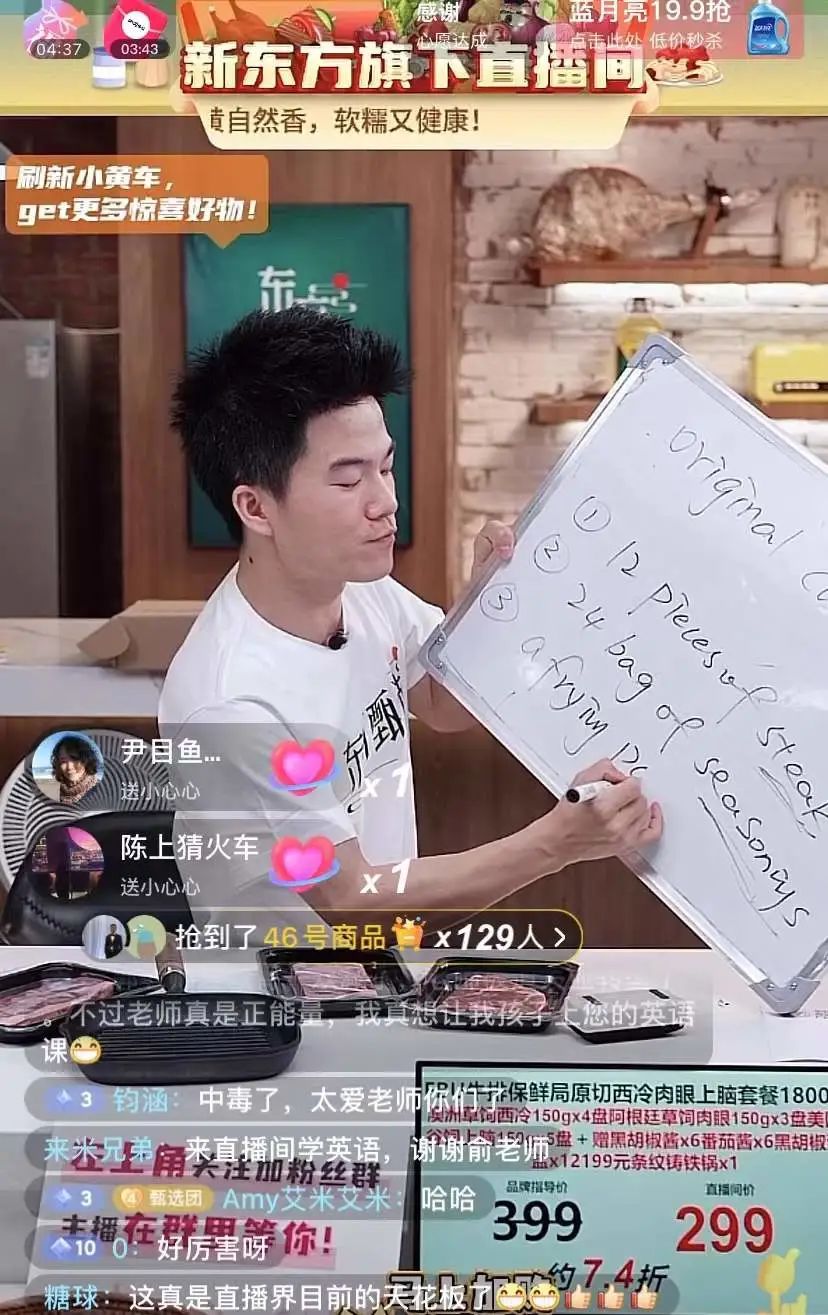 04:37
03:43
感谢
心愿达成
蓝月亮19.9抢
点击此处 低价秒杀
新东方旗下直播间
黄自然香，软糯又健康！
刷新小黄车，
get更多惊喜好物！
东
original
① 12 pieces of steak
② 24 bag of seasonings
③ a frying
东方甄选
尹目鱼...
送小心心
x 1
陈上猜火车
送小心心
x 1
抢到了 46号商品 x129人 >
。不过老师真是正能量，我真想让我孩子上您的英语
课😁
3 钧涵：中毒了，太爱老师你们了
来米兄弟：来直播间学英语，谢谢俞老师
3 4 甄选团 Amy艾米艾米：哈哈
10 0：好厉害呀
糖球：这真是直播界目前的天花板了😁😁👍👍👍
左上角关注加粉丝群
主播在群里等你！
牛排保鲜局原切西冷肉眼上脑套餐1800
澳洲草饲西冷150gx4盘阿根廷草饲肉眼150gx3盘美
谷饲上脑150gx5盘 + 赠黑胡椒酱x6番茄酱x6黑胡椒
盐x12199元条纹铸铁锅x1
品牌指导价
直播间价
399
299
约7.4折